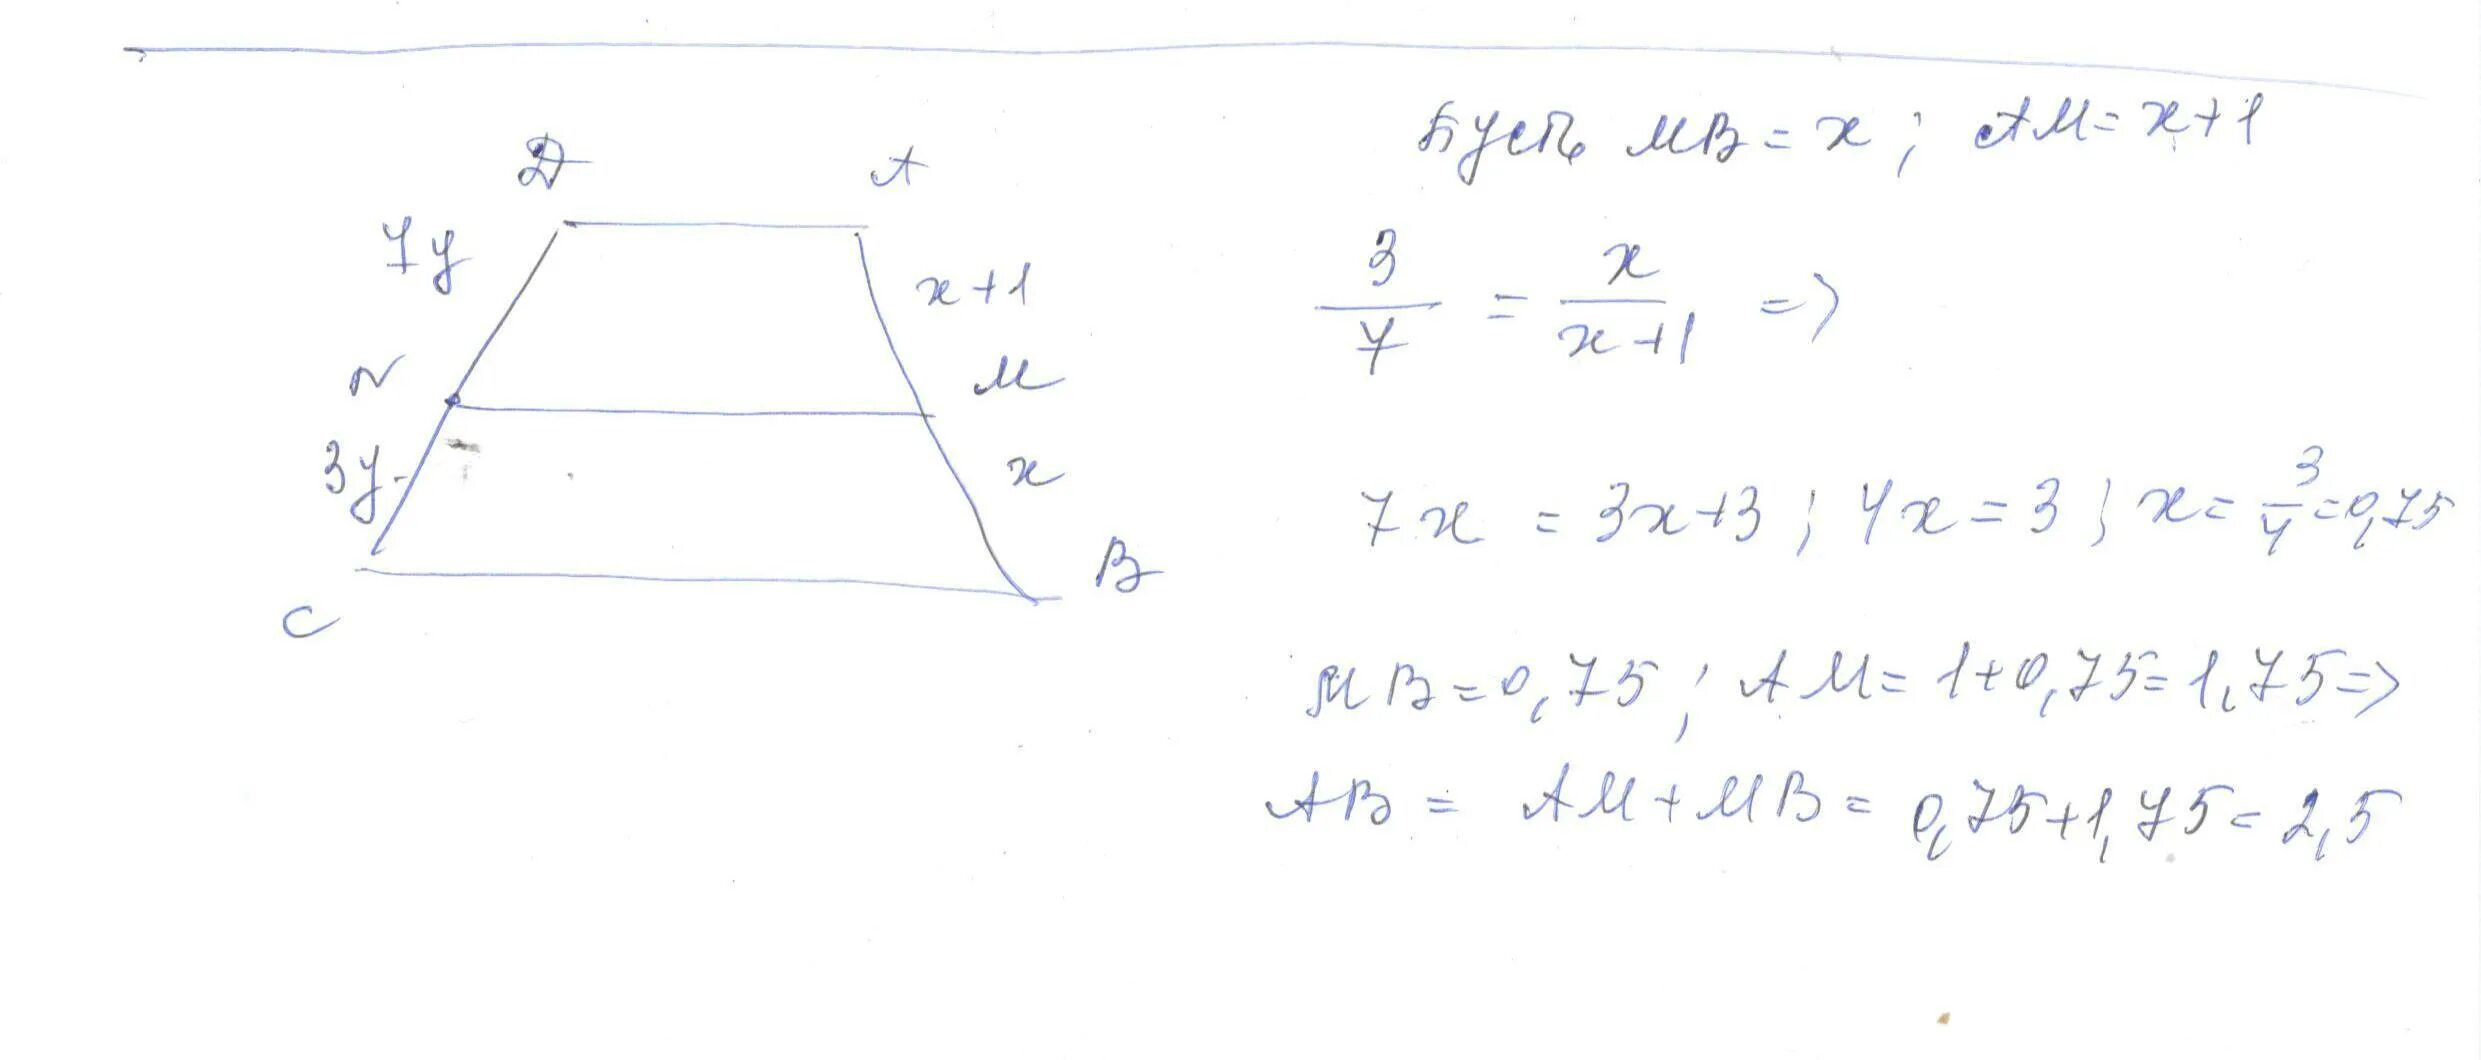 Пусть MB = x ; AM = x+1
D A
7y
x+1
3/7 = x/(x+1) =>
N M
3y x
7x = 3x+3 ; 4x = 3 ; x = 3/4 = 0,75
B
C
MB = 0,75 ; AM = 1+0,75 = 1,75 =>
AB = AM + MB = 0,75+1,75 = 2,5